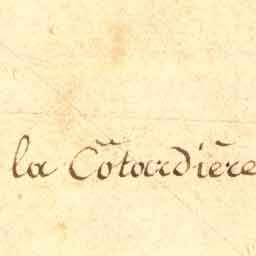 la Cõtardière